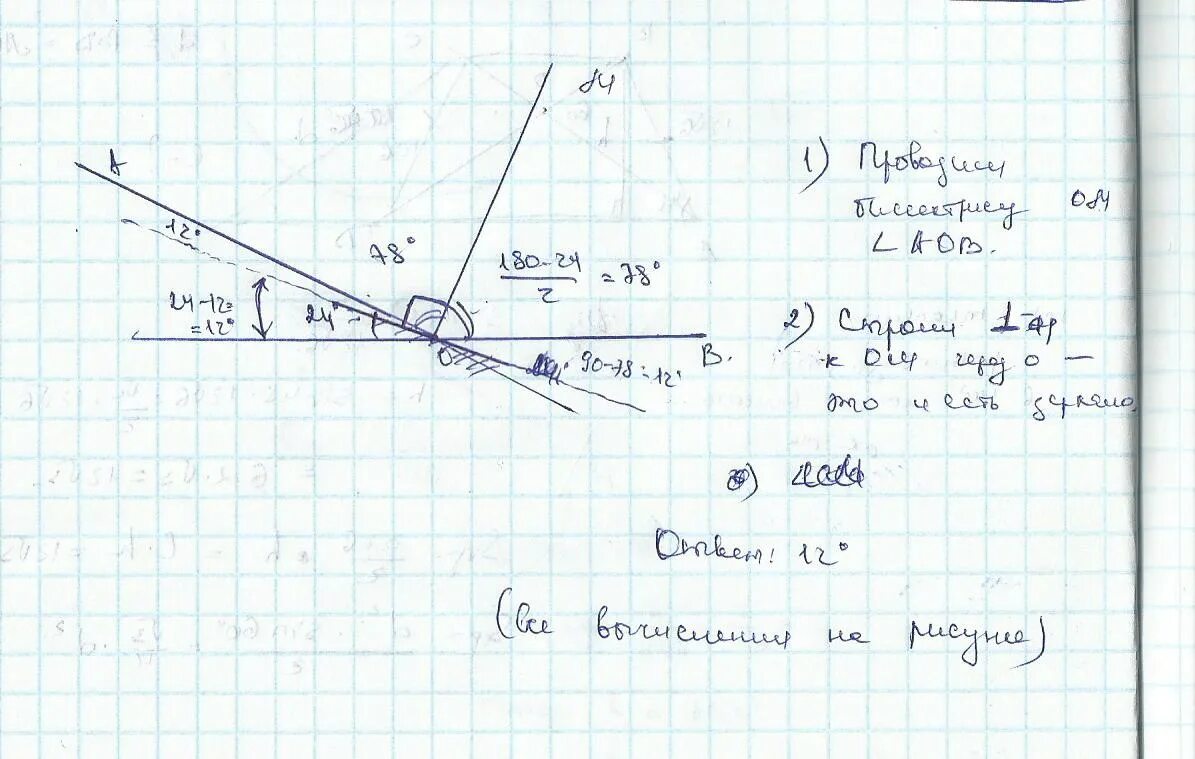 ОМ
А
12°
78°
180-24
2
= 78°
24-12=
= 12°
24°
О
В.
90-78=12°
1) Проводим
биссектрису ОМ
∠AOB.
2) Строим ⊥-яр
к ОМ через О —
это и есть зеркало
3)
Ответ: 12°
(все вычисления на рисунке)